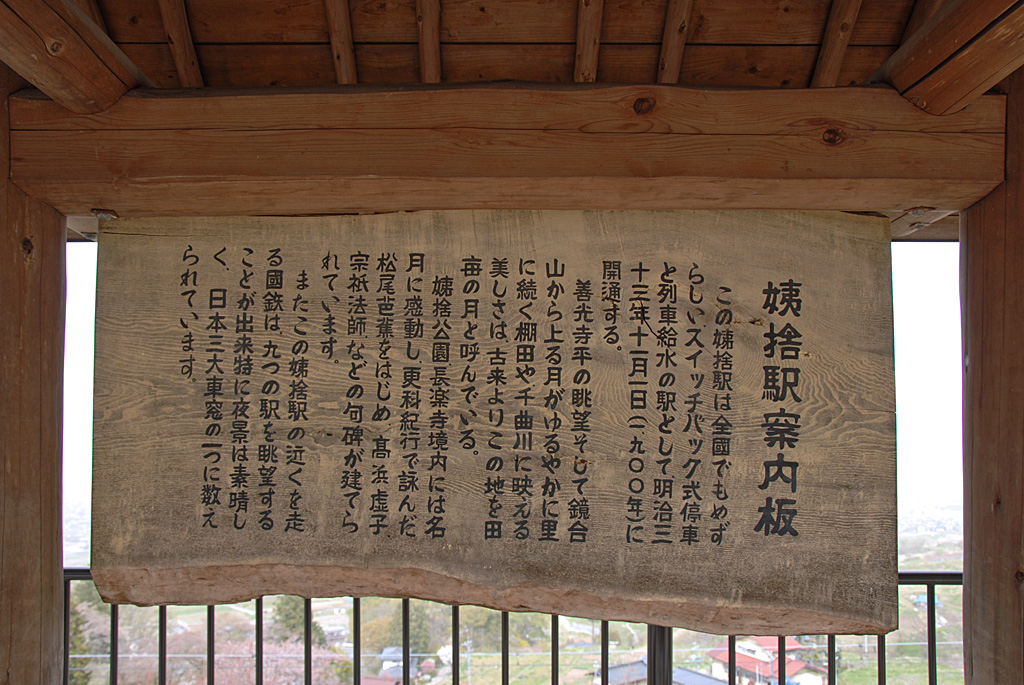 姨捨駅案内板
この姨捨駅は全國でもめず
らしいスイッチバック式停車
と列車給水の駅として明治三
十三年十一月一日(一九〇〇年)に
開通する。
善光寺平の眺望そして鏡台
山から上る月がゆるやかに里
に続く棚田や千曲川に映える
美しさは、古来よりこの地を田
毎の月と呼んでいる。
姨捨公園、長楽寺境内には名
月に感動し、更科紀行で詠んだ
松尾芭蕉をはじめ、高浜虚子
宗祇法師、などの句碑が建てら
れています。
またこの姨捨駅の近くを走
る國鉄は、九つの駅を眺望する
ことが出来特に夜景は素晴し
く、日本三大車窓の一つに数え
られています。